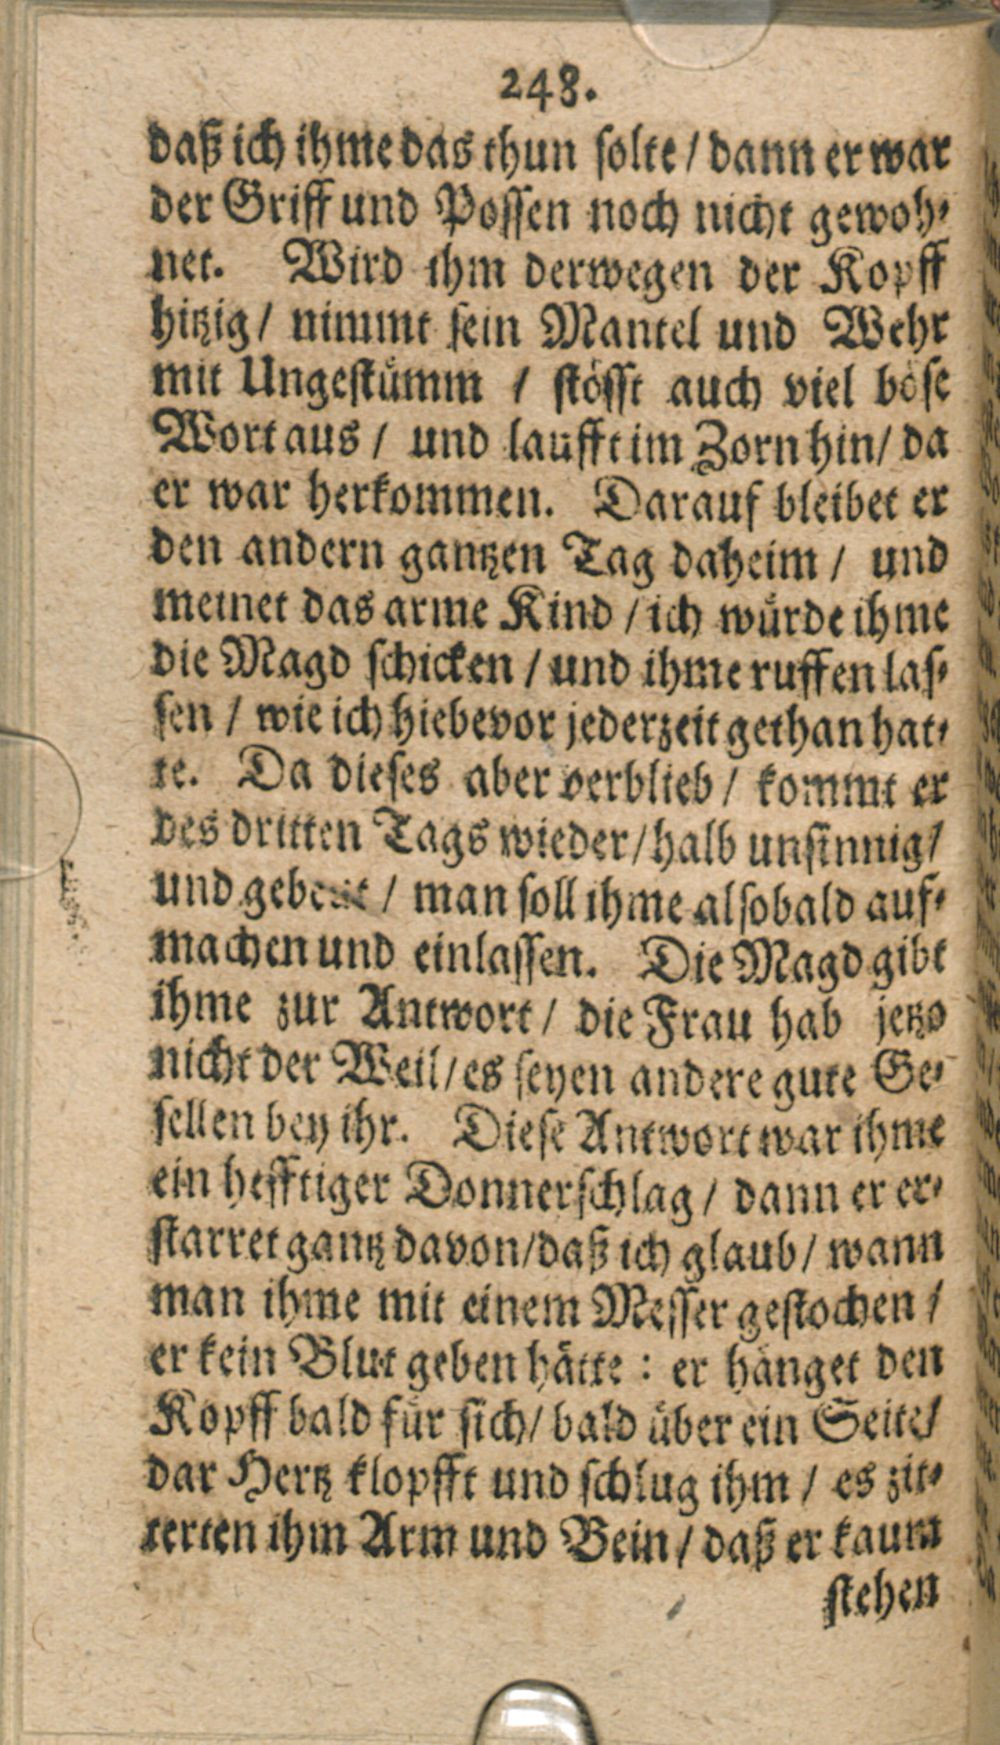 248.
daß ich ihme das thun solte / dann er war
der Griff und Possen noch nicht gewoh-
net. Wird ihm derwegen der Kopff
hitzig / nimmt sein Mantel und Wehr
mit Ungestümm / stösst auch viel böse
Wort aus / und laufft im Zorn hin / da
er war herkommen. Darauf bleibet er
den andern gantzen Tag daheim / und
meinet das arme Kind / ich würde ihme
die Magd schicken / und ihme ruffen las-
sen / wie ich hiebevor jederzeit gethan hat-
te. Da dieses aber verblieb / kommt er
des dritten Tags wieder / halb unsinnig /
und gebeut / man soll ihme alsobald auf-
machen und einlassen. Die Magd gibt
ihme zur Antwort / die Frau hab jetzo
nicht der Weil / es seyen andere gute Ge-
sellen bey ihr. Diese Antwort war ihme
ein hefftiger Donnerschlag / dann er er-
starret gantz davon / daß ich glaub / wann
man ihme mit einem Messer gestochen /
er kein Blut geben hätte : er hänget den
Kopff bald für sich / bald über ein Seite /
dar Hertz klopfft und schlug ihm / es zit-
terten ihm Arm und Bein / daß er kaum
stehen